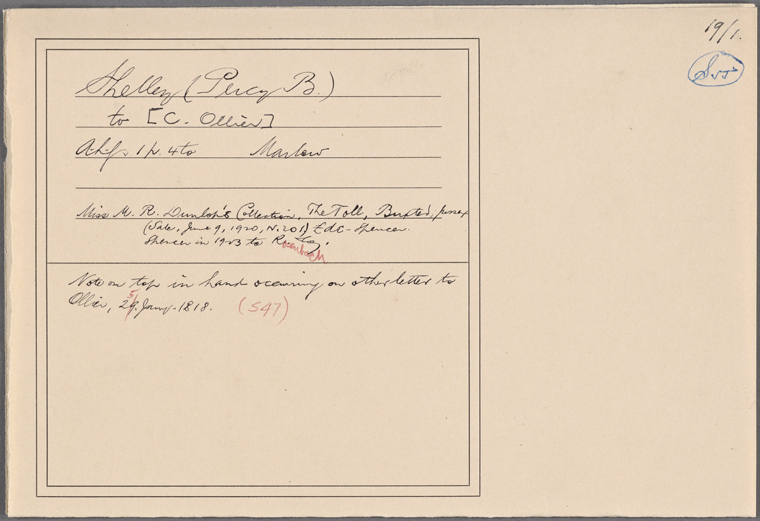 19/1.
Shelley (Percy B.)
to [C. Ollier]
1 p. 4to Marlow
Miss M. R. Dunlop's Collection, The Toll, Buxted, Sussex
(Sale, June 9, 1920, N. 201) Spencer.
Spencer in 1923 to Rosenbach
Note on top in hand occurring on other letter to
Ollier, 29. Jany. 1818. (S47)